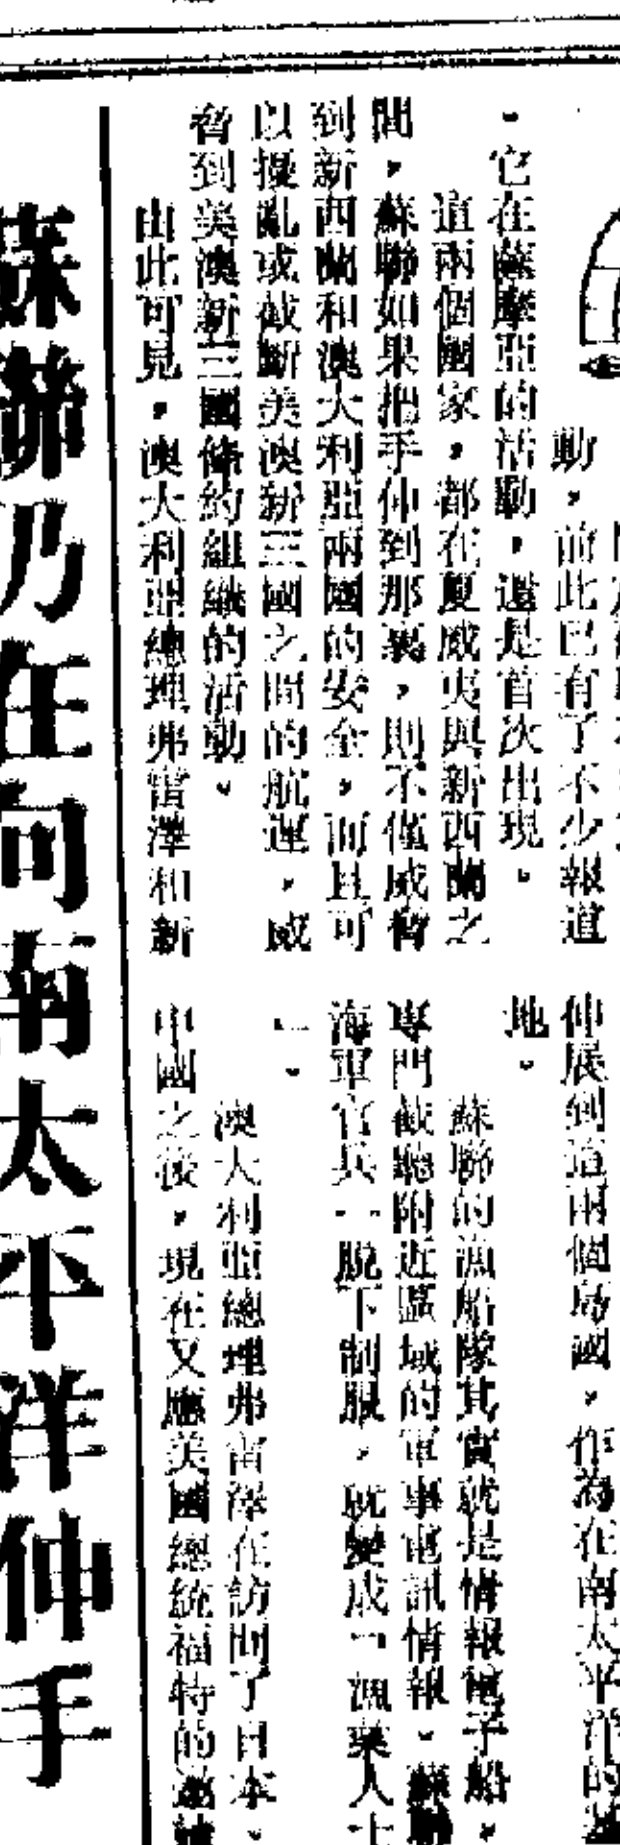 動，前此已有了不少報道
。它在薩摩亞的活動，還是首次出現。
這兩個國家，都在夏威夷與新西蘭之
間，蘇聯如果把手伸到那裏，則不僅威脅
到新西蘭和澳大利亞兩國的安全，而且可
以擾亂或截斷美澳新三國之間的航運，威
脅到美澳新三國條約組織的活動。
由此可見，澳大利亞總理弗雷澤和新
伸展到這兩個島國，作為在南太平洋的基
地。
蘇聯的漁船隊其實就是情報電子船，
專門截聽附近區域的軍事電訊情報。蘇聯
海軍官兵一脫下制服，就變成「漁業人士
」。
澳大利亞總理弗雷澤在訪問了日本、
中國之後，現在又應美國總統福特的邀請
蘇聯仍在向南太平洋伸手